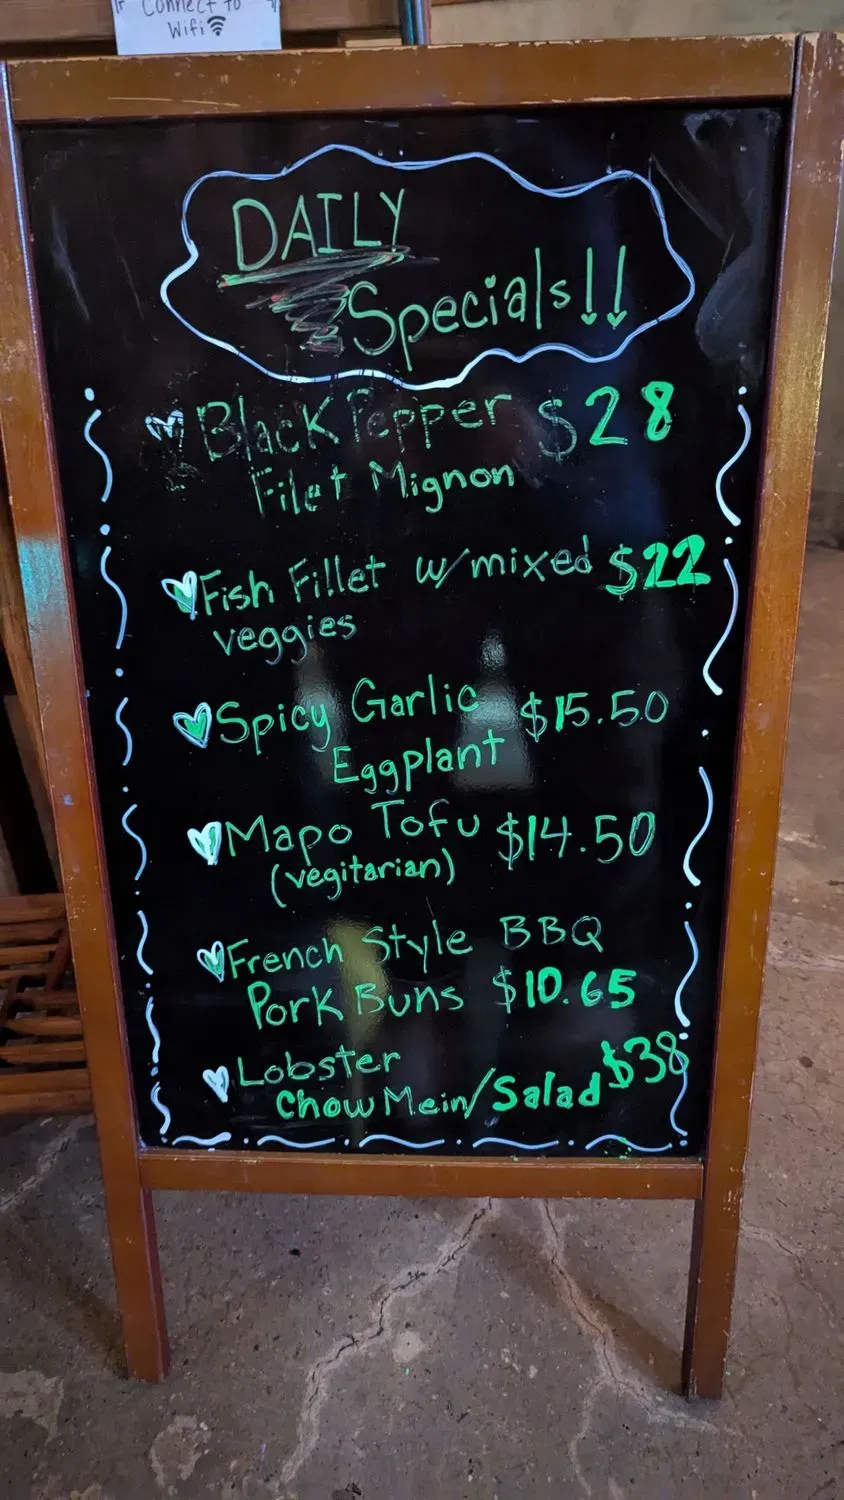 Connect to
Wifi
DAILY
Specials!!
Black Pepper $28
Filet Mignon
Fish Fillet w/mixed $22
veggies
Spicy Garlic $15.50
Eggplant
Mapo Tofu $14.50
(vegitarian)
French Style BBQ
Pork Buns $10.65
Lobster $38
Chow Mein/Salad